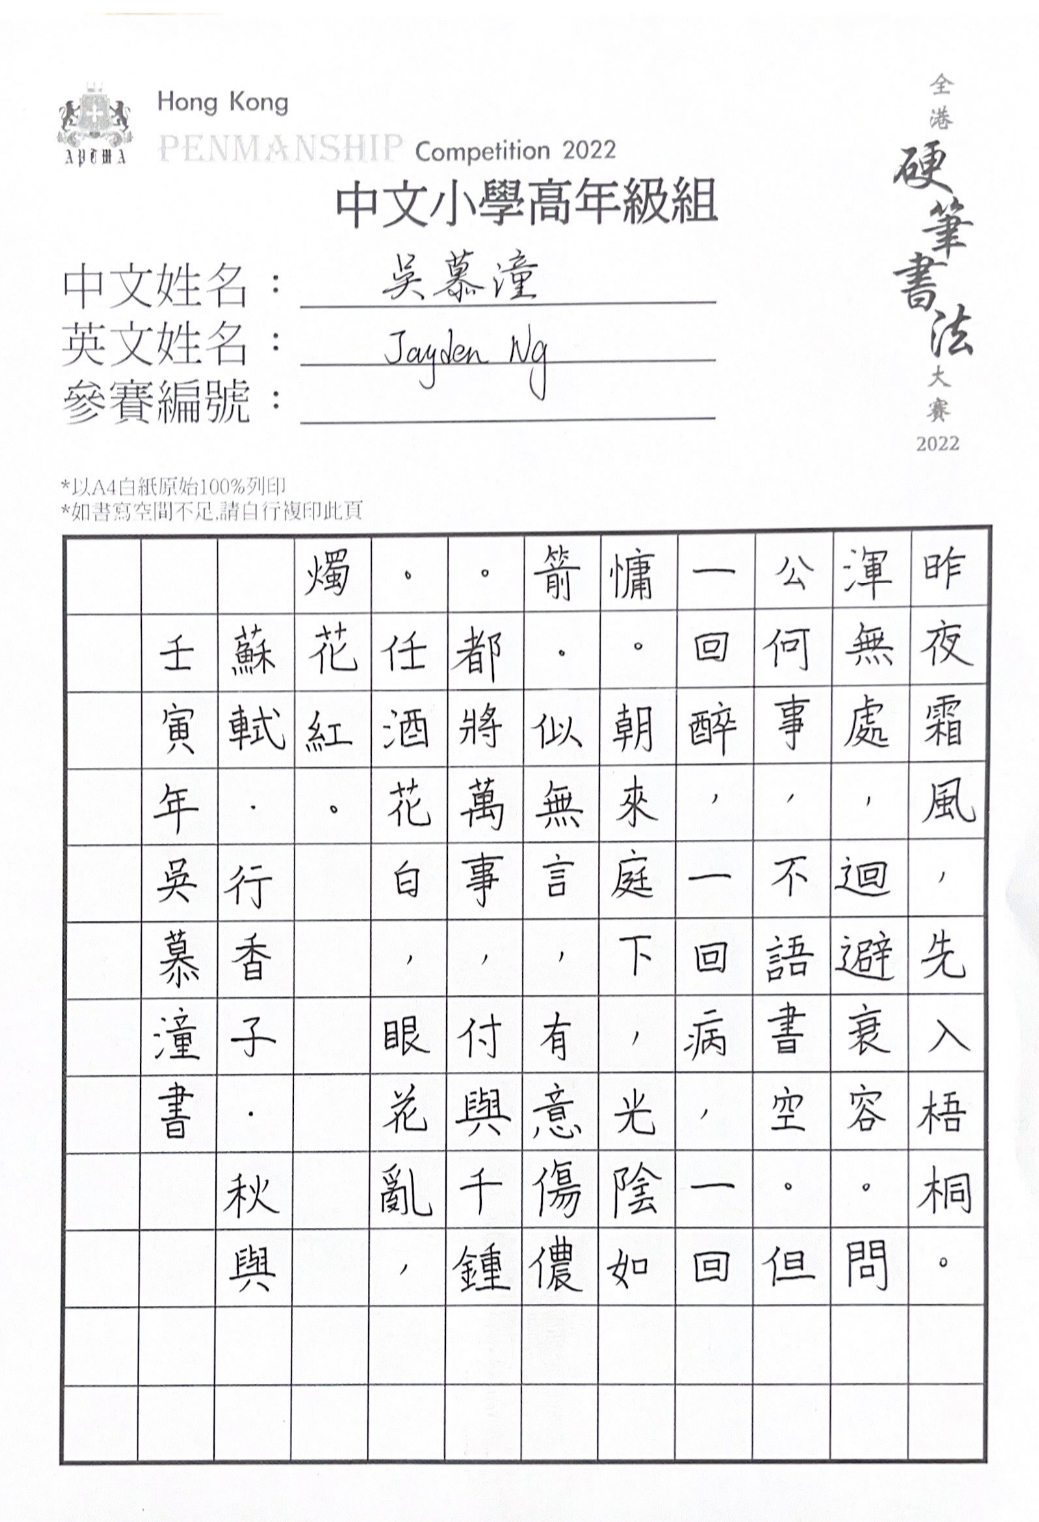 Hong Kong
PENMANSHIP Competition 2022
中文小學高年級組
APTMA
全港
硬筆書法
大賽
2022
中文姓名：吳慕潼
英文姓名：Jayden Ng
參賽編號：
*以A4白紙原始100%列印
*如書寫空間不足,請自行複印此頁
昨夜霜風，先入梧桐。
渾無處，迴避衰容。問
公何事，不語書空。但
一回醉，一回病，一回
慵。朝來庭下，光陰如
箭．似無言，有意傷儂
。都將萬事，付與千鍾
．任酒花白，眼花亂，
燭花紅。
蘇軾．行香子．秋與
壬寅年吳慕潼書